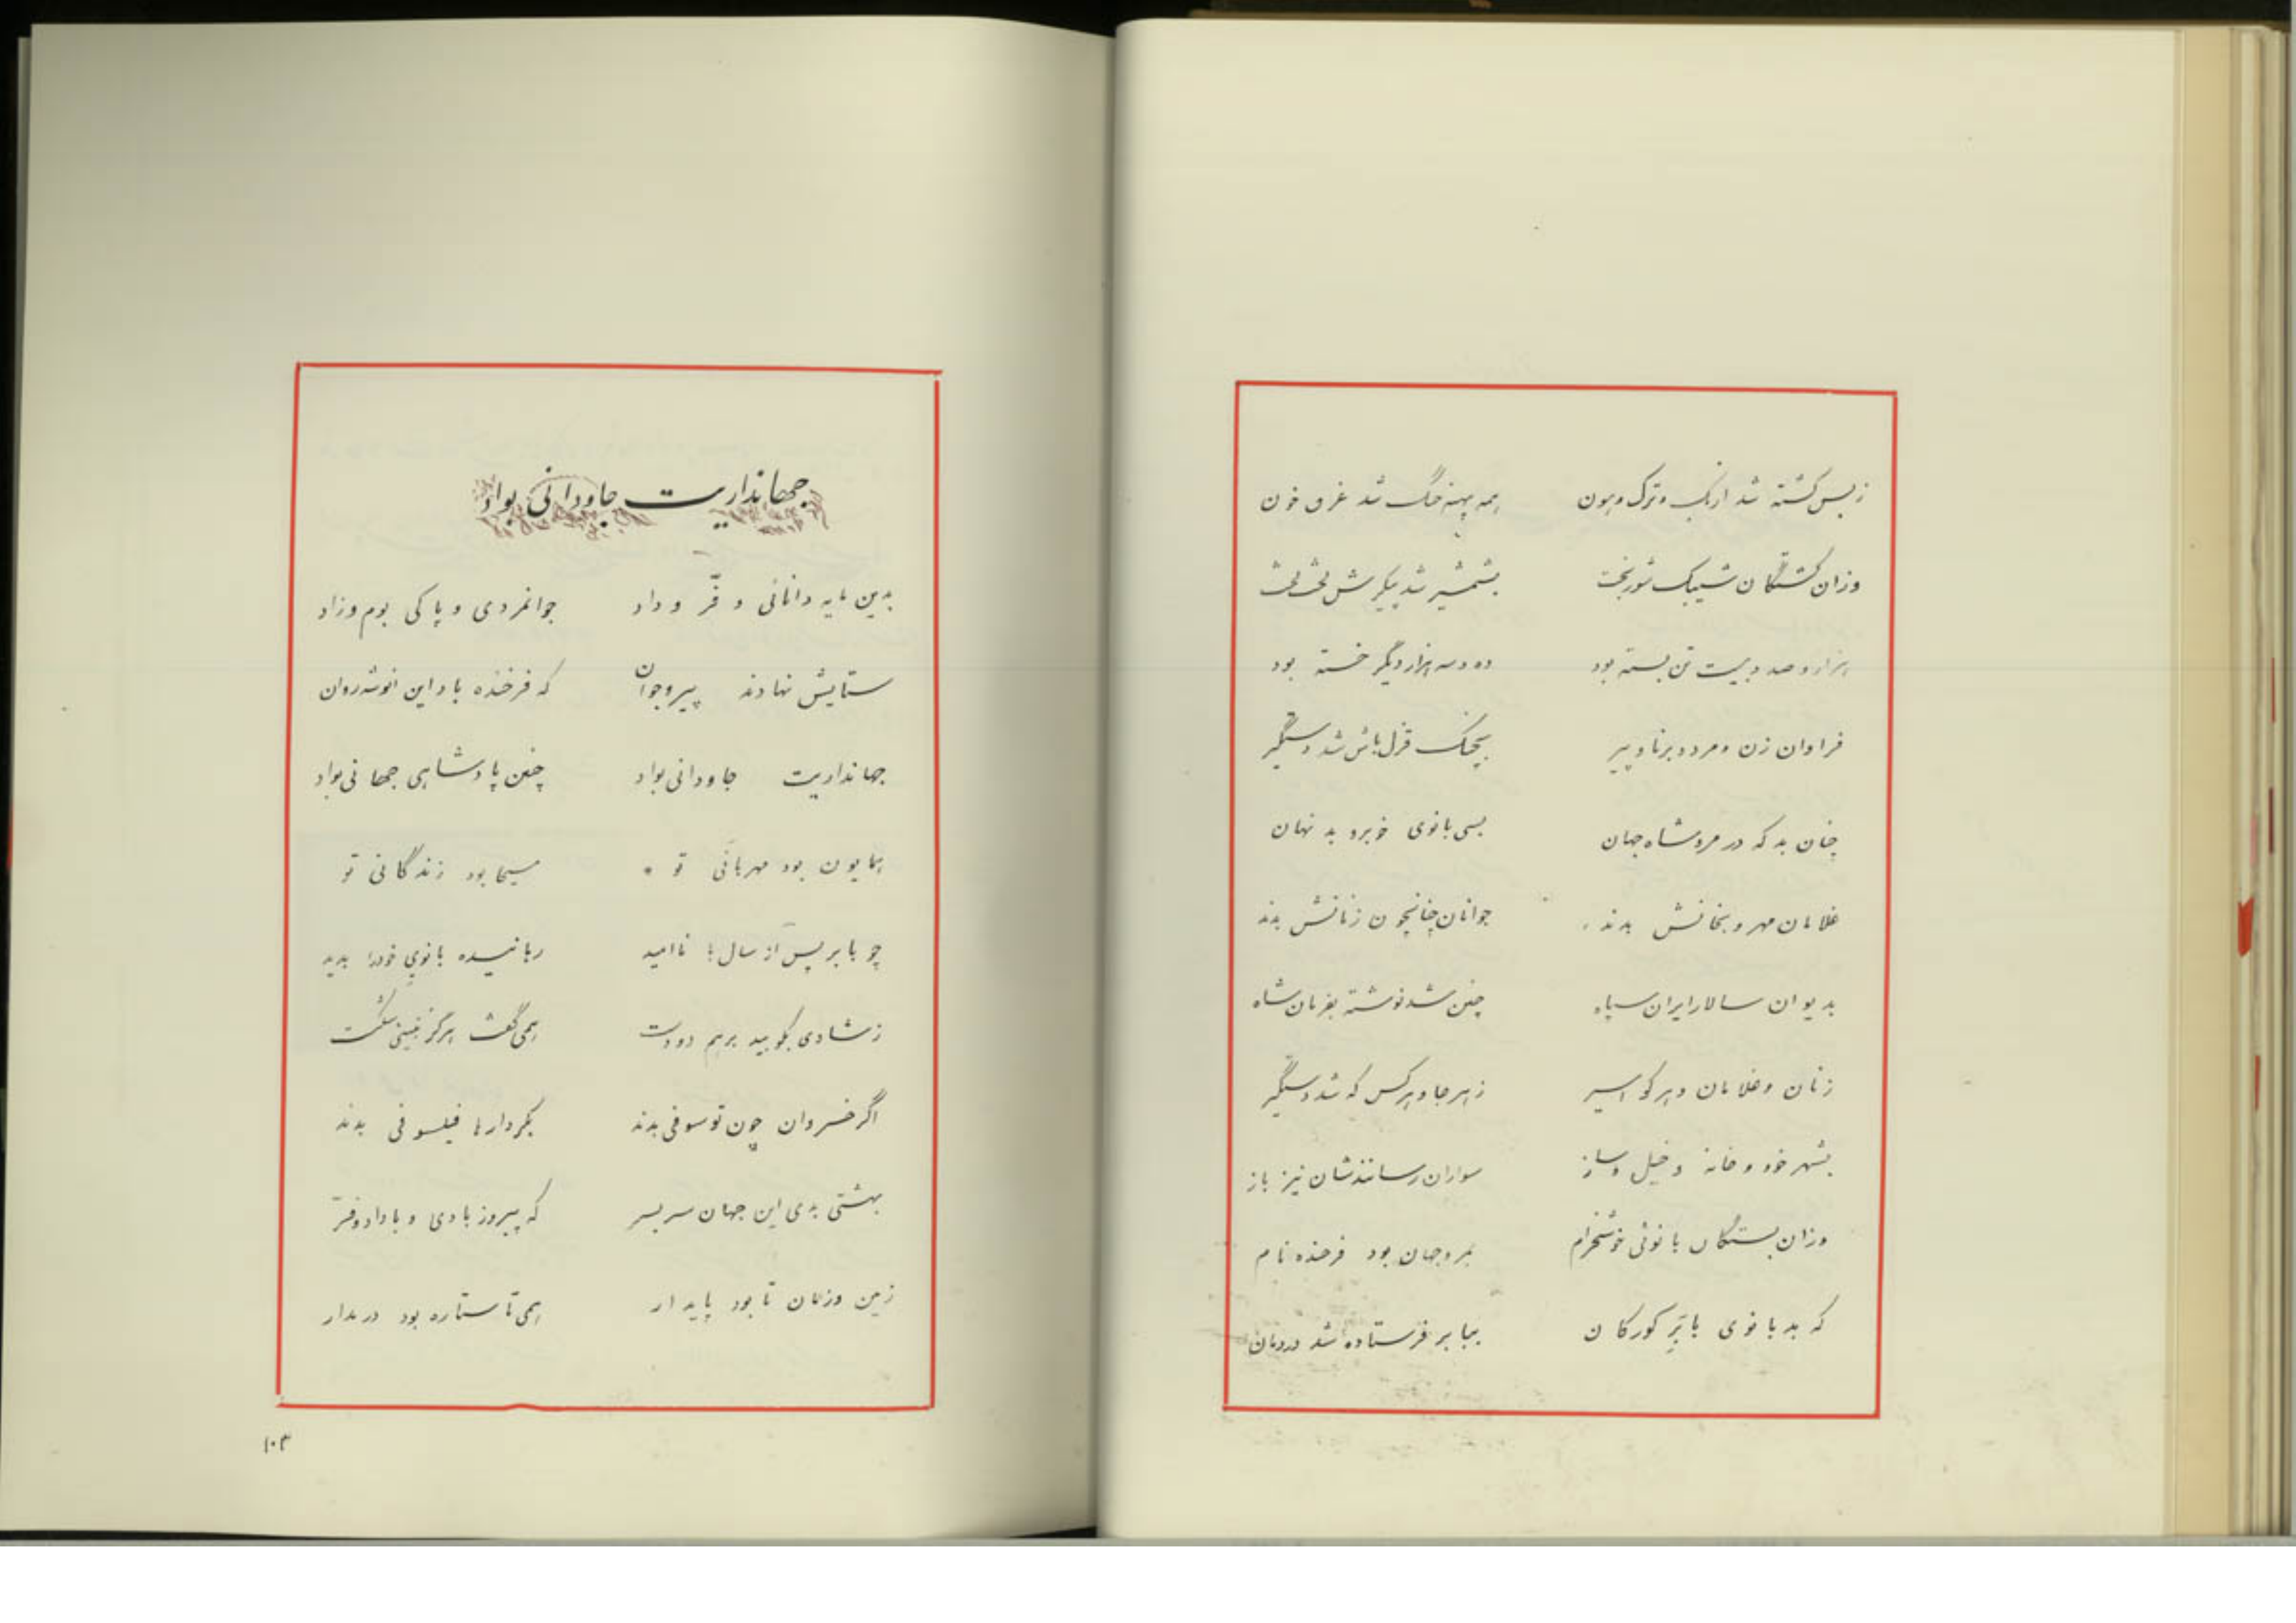 ز بس کشته شد ازبک و ترک و هون همه پهنه جنگ شد غرق خون
وزان کشتگان شیبک شوربخت بشمشیر شد پیکرش لخت لخت
هزار و صد و بیست تن بسته بود ده و سه هزار دگر خسته بود
فراوان زن و مرد و برنا و پیر بچنگ قزل باش شد دستگیر
چنان بد که در مرو شاه جهان بسی بانوی خوبرو بد نهان
غلامان مهرو بخانش بدند جوانان چنانچون زنانش بدند
بدیوان سالار ایران سپاه چنین شد نوشته بفرمان شاه
زنان و غلامان و هر کو اسیر ز هر جا و هر کس که شد دستگیر
بشهر خود و خانه و خیل و ساز سواران رسانندشان نیز باز
وزان بستگان بانوئی خوشخرام بمرو جهان بود فرخنده نام
که بد بانوی بابر گورکان ببابر فرستاده شد در زمان
جهانداریت جاودانی بواد
بدین مایه دانائی و فرّ و داد جوانمردی و پاکی بوم و زاد
ستایش نهادند پیر و جوان که فرخنده باد این انوشه روان
جهانداریت جاودانی بواد چنین پادشاهی جهانی بواد
همایون بود مهربانی تو مسیحا بود زندگانی تو
چو بابر پس از سال‌ها ناامید رهانیده بانوی خود را بدید
ز شادی بکوبید بر هم دو دست همی گفت هرگز نبینی شکست
اگر خسروان چون تو سوفی بدند بکردارها فیلسوفی بدند
بهشتی بدی این جهان سر بسر که پیروز بادی و با داد و فرّ
زمین و زمان تا بود پایدار همی تا ستاره بود در مدار
۱۰۳